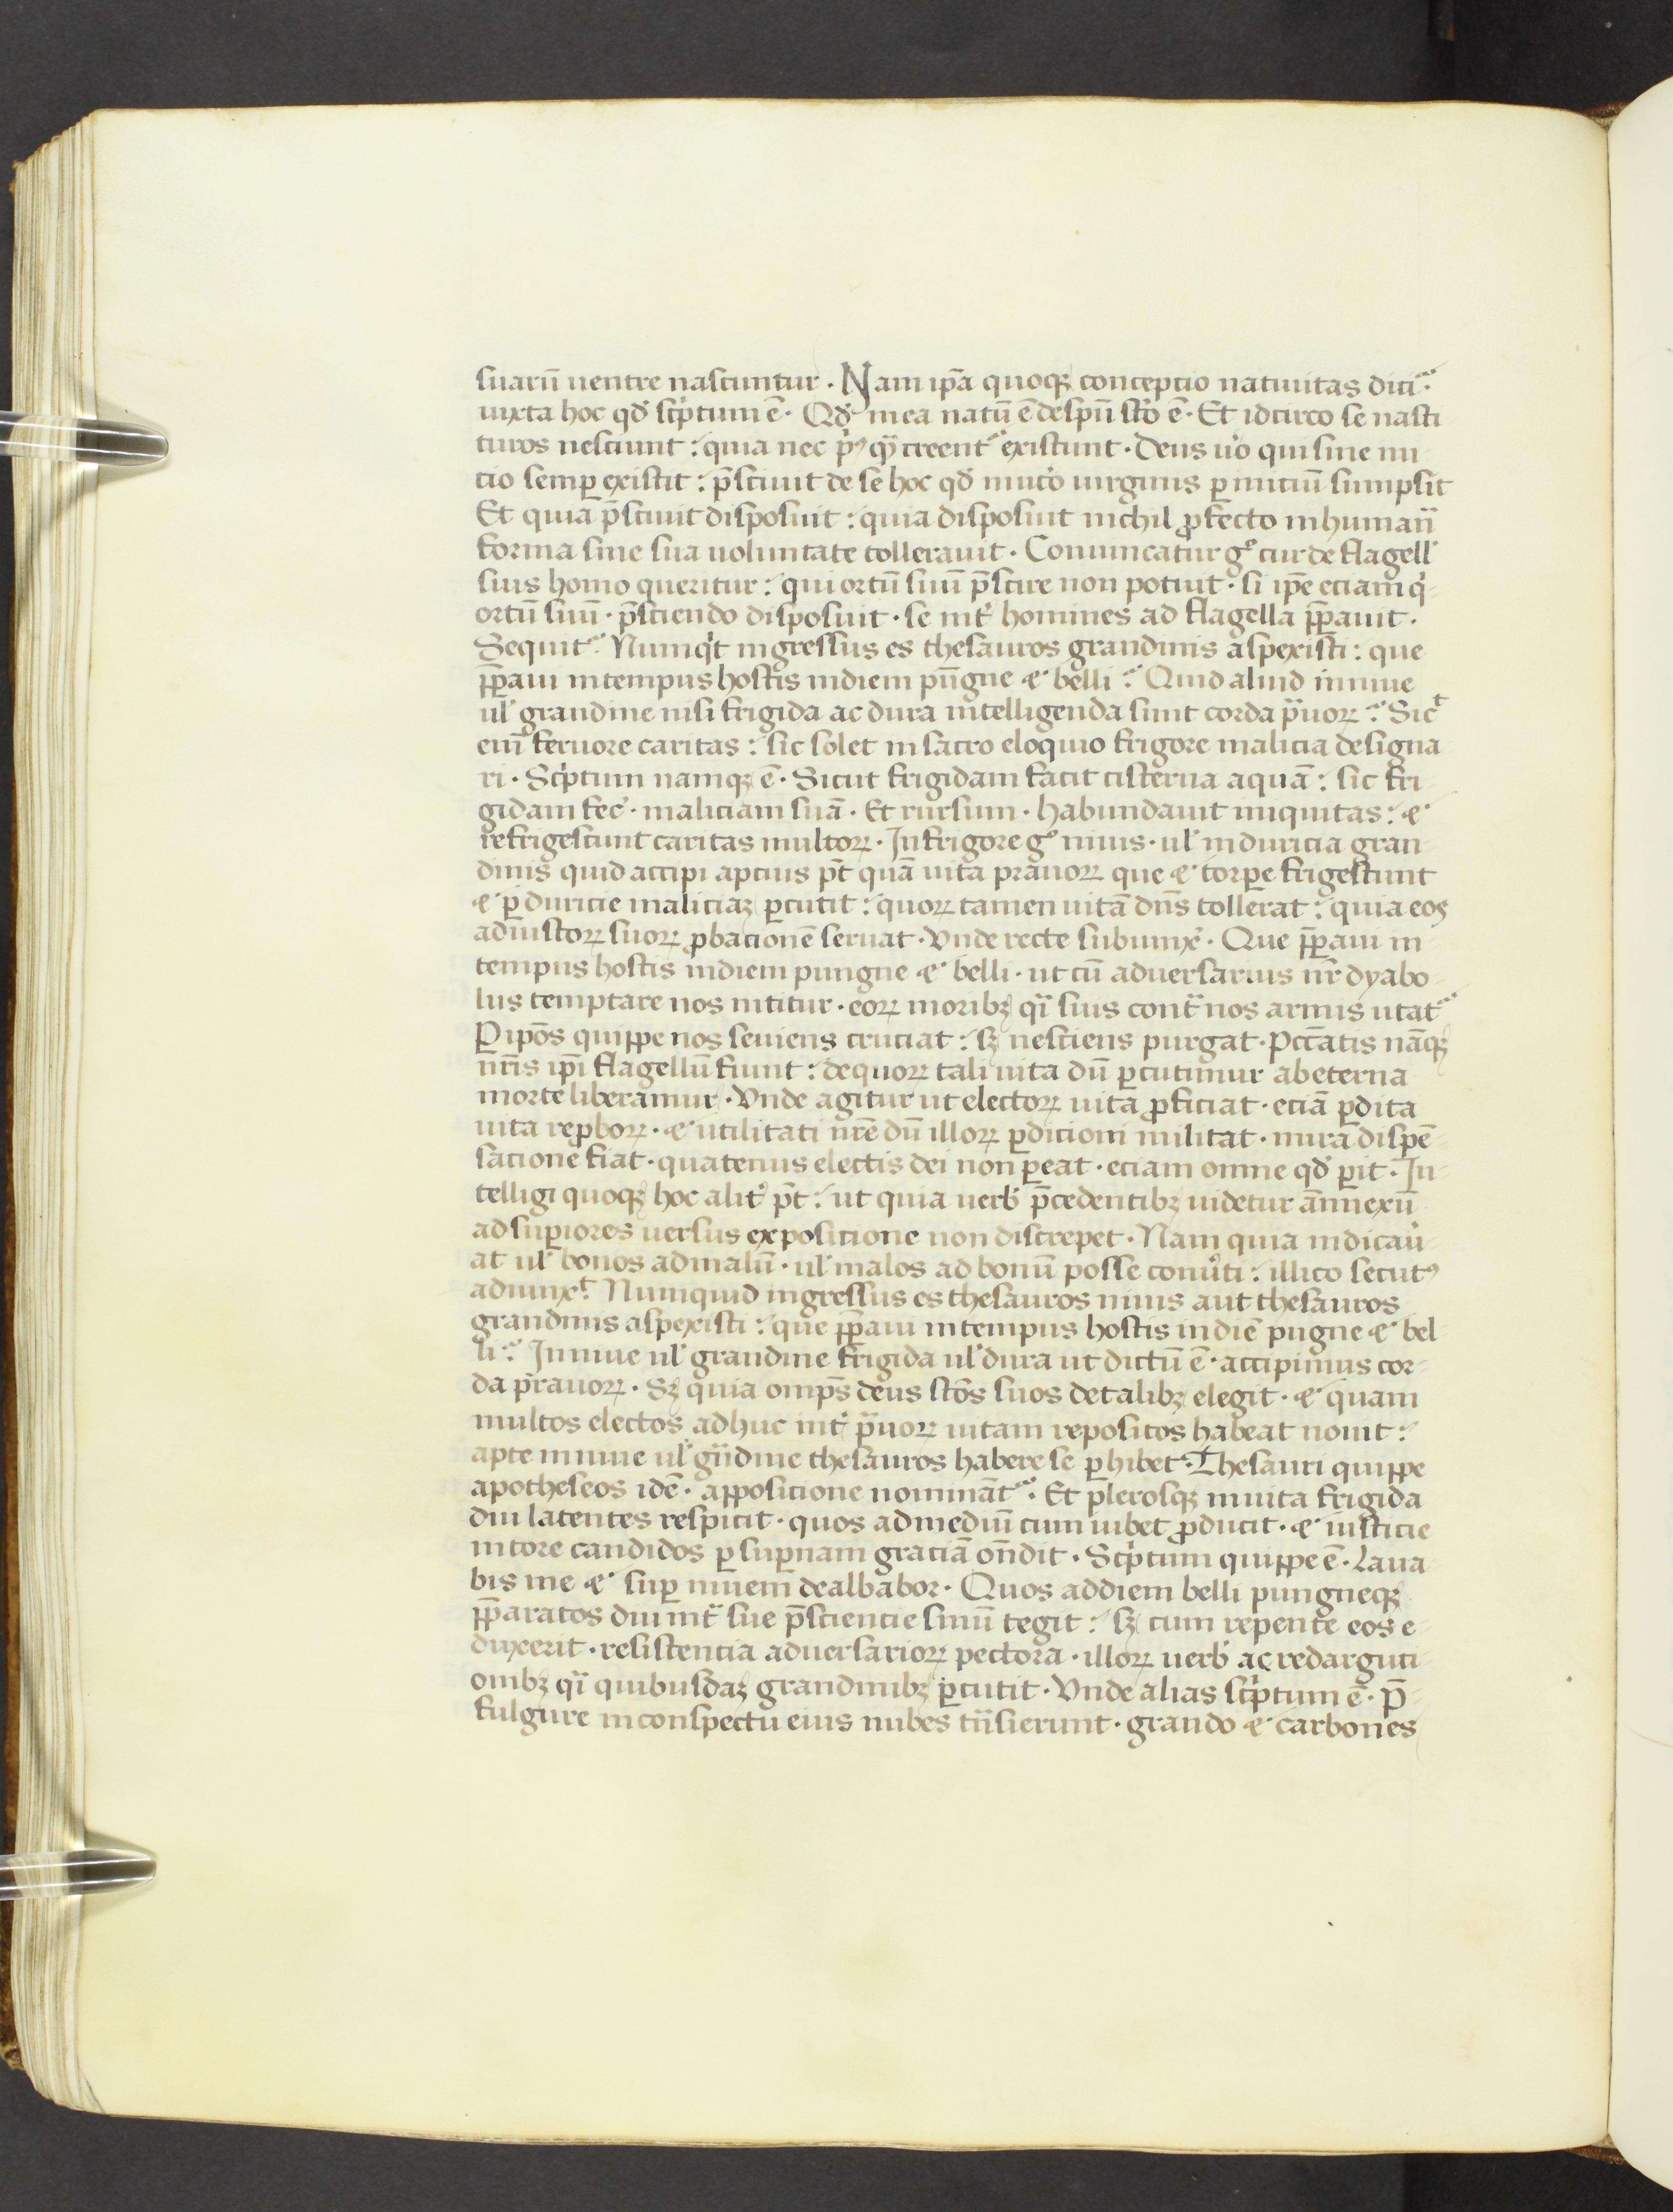 suarū uentre nascuntur · Nam ip̄a quoqꝫ conceptio natiuitas dicit᷑ ·
iuxta hoc qđ sc͛ptum ē · Qđ mea natū ē de sp̄u sc̄o ē · Et idcirco se nasci
turos nesciunt : quia nec p͛ꝰ qͣ creent᷑ existunt · Deus u͛o qui sine ini
cio semꝑ existit : p̄sciuit de se hoc qđ in ut͛o uirginis ꝑ iniciū sumpsit
Et quia p̄sciuit disposuit : quia disposuit nichil ꝓfecto in humanͣ
forma sine sua uoluntate tollerauit · Conuincatur gͦ cur de flagell͛
suis homo queritur : qui ortū suū p̄scire non potuit · si ip̄e eciam qͥ
ortū suū · p̄sciendo disposuit · se int͛ homines ad flagella p̄pauit ·
Sequit᷑ · Numqͥt ingressus es thesauros grandinis aspexisti : que
p̄paui in tempus hostis in diem pūgne ⁊ belli : Quid aliud in niue
ul͛ grandine nisi frigida ac dura intelligenda sunt corda pͣuoꝝ : Sic᷑
eni᷑ feruore caritas : sic solet in sacro eloquio frigore malicia designa
ri · Sc͛ptum namqꝫ ē · Sicut frigidam facit cisterna aquā : sic fri
gidam fec͛ · maliciam suā · Et rursum · habundauit iniquitas : ⁊
refrigescunt caritas multoꝝ · In frigore gͦ niuis · ul͛ in duricia gran
dinis quid accipi apcius p̄t quā uita prauoꝝ que ⁊ torpe frigescunt
⁊ ꝑ duricie maliciaꝫ ꝑcutit : quoꝝ tamen uitā dn̄s tollerat : quia eos
ad iustoꝝ suoꝝ ꝓbacionē seruat · Vnde recte subiunx͛ · Que p̄paui in
tempus hostis in diem pungne ⁊ belli · ut cū aduersarius nr̄ dyabo
lus temptare nos nititur · eoꝝ moribꝫ qͣ suis contͣ nos armis utat᷑
P ipōs quippe nos seuiens cruciat : sꝫ nesciens purgat · Pccātis nāqꝫ
nr̄is ip̄i flagellū fiunt : de quoꝝ tali uita dū ꝑcutimur ab eterna
morte liberamur · Vnde agitur ut electoꝝ uita ꝓficiat · eciā ꝑdita
uita reꝓboꝝ · ⁊ utilitati nr̄e dū illoꝝ ꝑdicioni militat · mira dispē
sacione fiat · quatenus electis dei non ꝑeat · eciam omne qđ ꝑit · In
telligi quoqꝫ hoc alit͛ p̄t : ut quia uerb͛ p̄cedentibꝫ uidetur annexū
ad suꝑiores uersus exposicione non discrepet · Nam quia indicau͛
at ul͛ bonos ad malū · ul͛ malos ad bonū posse conu͛ti : illico secutꝰ
adiunx᷑ · Numquid ingressus es thesauros niuis aut thesauros
grandinis aspexisti : que p̄paui in tempus hostis in diē pugne ⁊ bel
li : In niue ul͛ grandine frigida ul͛ dura ut dictū ē · accipimus cor
da prauoꝝ · Sꝫ quia omp̄s deus sc̄os suos de talibꝫ elegit · ⁊ quam
multos electos adhuc int͛ pͣuoꝝ uitam repositos habeat nouit :
apte in niue ul͛ gͣndine thesauros habere se ꝑhibet · Thesauri quippe
apotheseos idē · apposicione nominānt᷑ · Et plerosqꝫ in uita frigida
diu latentes respicit · quos ad mediū cum iubet ꝓducit · ⁊ iusticie
nitore candidos ꝑ suꝑnam graciā on̄dit · Sc͛ptum quippe ē · Laua
bis me ⁊ suꝑ niuem dealbabor · Quos ad diem belli pungneqꝫ
p̄paratos diu intͣ sue p̄sciencie sinū tegit : sꝫ cum repente eos e
duxerit · resistencia aduersarioꝝ pectora · illoꝝ uerb͛ ac redarguti
onibꝫ qͣ quibusdaꝫ grandinibꝫ ꝑcutit · Vnde alias sc͛ptum ē · P̄
fulgure in conspectu eius nubes tͣnsierunt · grando ⁊ carbones